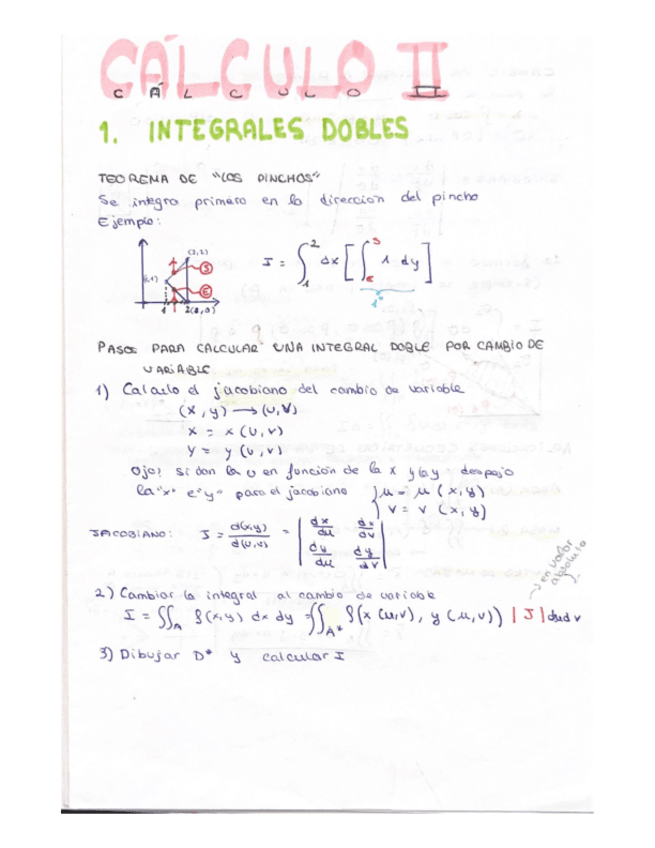 CÁLCULO II
1. INTEGRALES DOBLES
TEOREMA DE "LOS PINCHOS"
Se integra primero en la dirección del pincho
Ejemplo:
(2,2)
(1,1)
S
E
1 2(2,0)
I = ∫₁² dx [∫ₑˢ 1 dy]
1º
PASOS PARA CALCULAR UNA INTEGRAL DOBLE POR CAMBIO DE
VARIABLE
1) Calculo el jacobiano del cambio de variable
(x, y) → (u, v)
x = x (u, v)
y = y (u, v)
Ojo! si dan la u en función de la x y la y despejo
la "x" e "y" para el jacobiano { u = u (x, y)
v = v (x, y)
JACOBIANO: J = d(x,y)/d(u,v) = | dx/du dx/dv |
| dy/du dy/dv |
→ en valor absoluto
2) Cambiar la integral al cambio de variable
I = ∬_A f(x,y) dx dy = ∬_A* f(x (u,v), y (u,v)) |J| du dv
3) Dibujar D* y calcular I